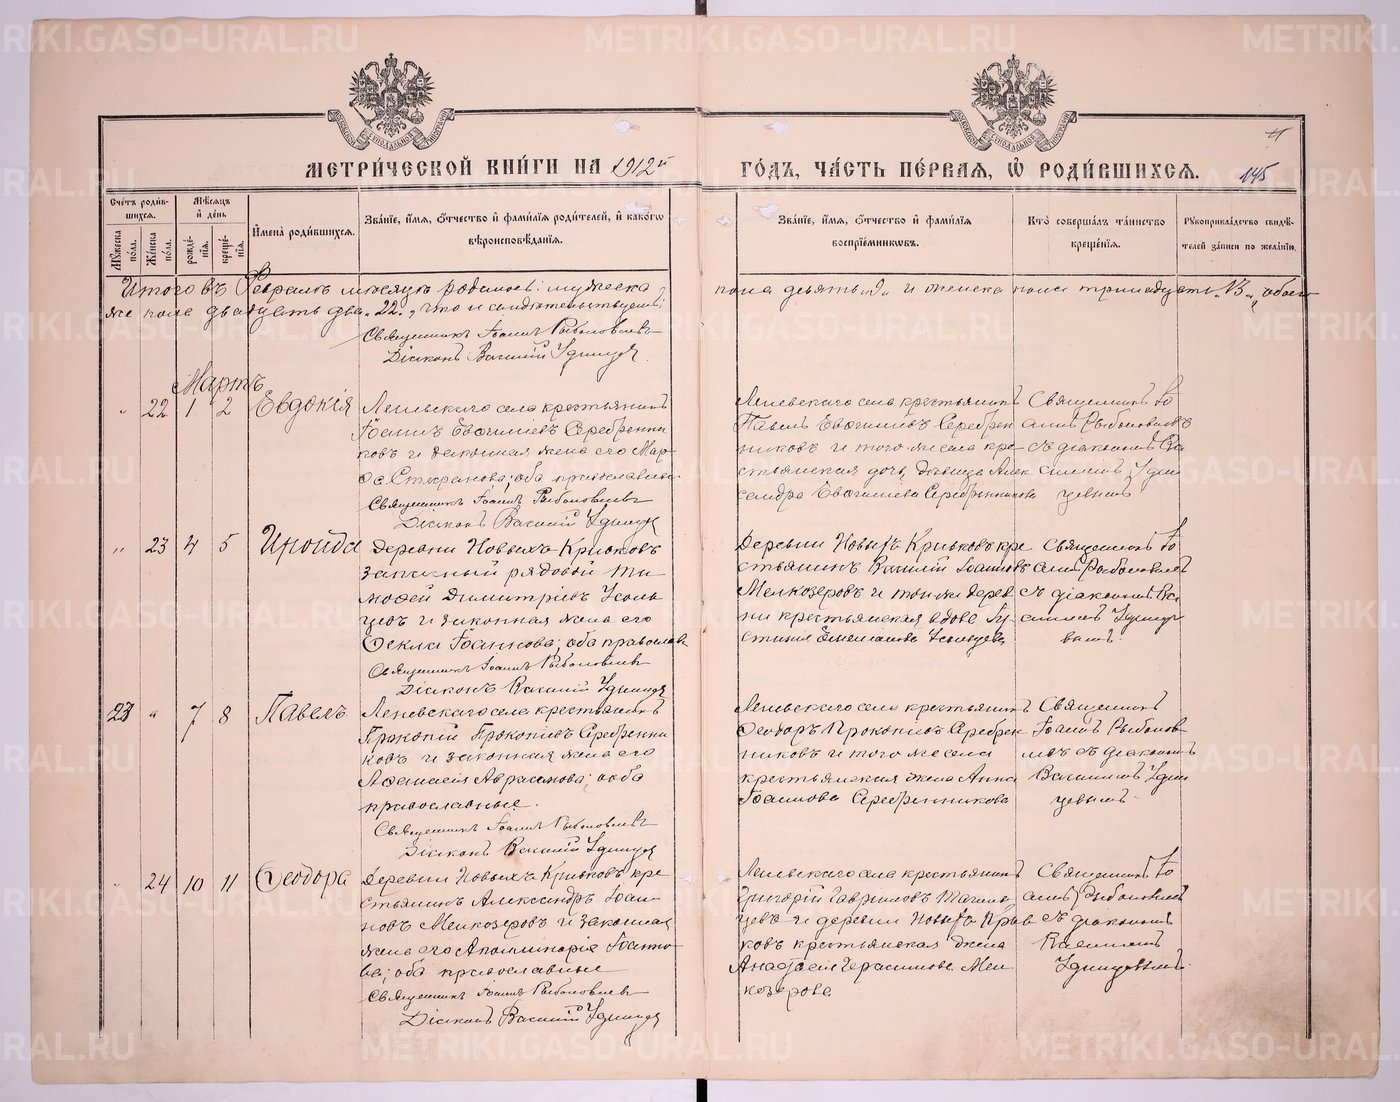 МЕТРИ́ЧЕСКОЙ КНИ́ГИ НА 1912й
ГО́ДЪ, ЧА́СТЬ ПЕ́РВАЯ, Ѡ҆ РОДИ́ВШИХСѦ.
145
Сче́тъ роди́в-
шихся.
Мѣ́сяцъ
и҆ де́нь
Му́жеска
по́ла.
Же́нска
по́ла.
рожде́-
нія.
креще́-
нія.
И҆мена̀ роди́вшихся.
Зва́ніе, и҆́мя, ѻ҆́тчество и҆ фами́лія роди́телей, и҆ како́гѡ
вѣроисповѣ́данія.
Зва́ніе, и҆́мя, ѻ҆́тчество и҆ фами́лія
воспріе́мниковъ.
Кто̀ соверша́лъ та́инство
креще́нія.
Рꙋкоприкла́дство свидѣ́-
телей за́писи по жела́нію.
Итого въ Февралѣ мѣсяцѣ родилось: мужеска
пола девять „9„ и женска пола тринадцать „13„, обоего
же пола двадцать два „22„, что и свидѣтельствуемъ:
Священникъ Іоаннъ Рыболовлевъ
Діаконъ Василій Удинцев
Мартъ
„ 22 1 2 Евдокія
Леневскаго села крестьянинъ
Іоаннъ Евгеніевъ Серебренни
ковъ и законная жена его Мар
ѳа Стефанова; оба православные
Священникъ Іоаннъ Рыболовлевъ
Діаконъ Василій Удинцев
Леневскаго села крестьянинъ
Павелъ Евгеніевъ Серебрен
никовъ и того же села кре
стьянская дочь, дѣвица Алек
сандра Евгеніева Серебренникова
Священникъ Іо
аннъ Рыболовлевъ
съ діакономъ Ва
силіемъ Удин
цевымъ
„ 23 4 5 Ираида
Деревни Новыхъ Кривковъ
запасный рядовой Ти
моѳей Димитріевъ Усоль
цевъ и законная жена его
Ѳекла Іоаннова; оба православн
Священникъ Іоаннъ Рыболовлевъ
Діаконъ Василій Удинцев
Деревни Новыхъ Кривковъ кре
стьянинъ Василій Іоанновъ
Мелкозеровъ и той же дерев
ни крестьянская вдова Ѳу
стинія Емеліанова Усольцева
Священникъ Іо
аннъ Рыболовлевъ
съ діакономъ Ва
силіемъ Удинце
вымъ
23 „ 7 8 Павелъ
Леневскаго села крестьянинъ
Прокопій Прокопіевъ Серебренни
ковъ и законная жена его
Аѳанасія Аврамова; оба
православные.
Священникъ Іоаннъ Рыболовлевъ
Діаконъ Василій Удинцев
Леневскаго села крестьянинъ
Ѳеодоръ Прокопіевъ Серебрен
никовъ и того же села
крестьянская жена Анна
Іоакимова Серебренникова
Священникъ
Іоаннъ Рыболов
левъ съ діакономъ
Василіемъ Удин
цевымъ
„ 24 10 11 Ѳеодора
Деревни Новыхъ Кривковъ кре
стьянинъ Александръ Іоан
новъ Мелкозеровъ и законная
жена его Аполлинарія Іоанно
ва; оба православные
Священникъ Іоаннъ Рыболовлевъ
Діаконъ Василій Удинцев
Леневскаго села крестьянинъ
Григорій Гавриловъ Тагиль
цевъ и деревни Новыхъ Крив
ковъ крестьянская жена
Анастасія Герасимова Мел
козерова
Священникъ Іо
аннъ Рыболовлевъ
съ діакономъ
Василіемъ
Удинцевымъ.
METRIKI.GASO-URAL.RU